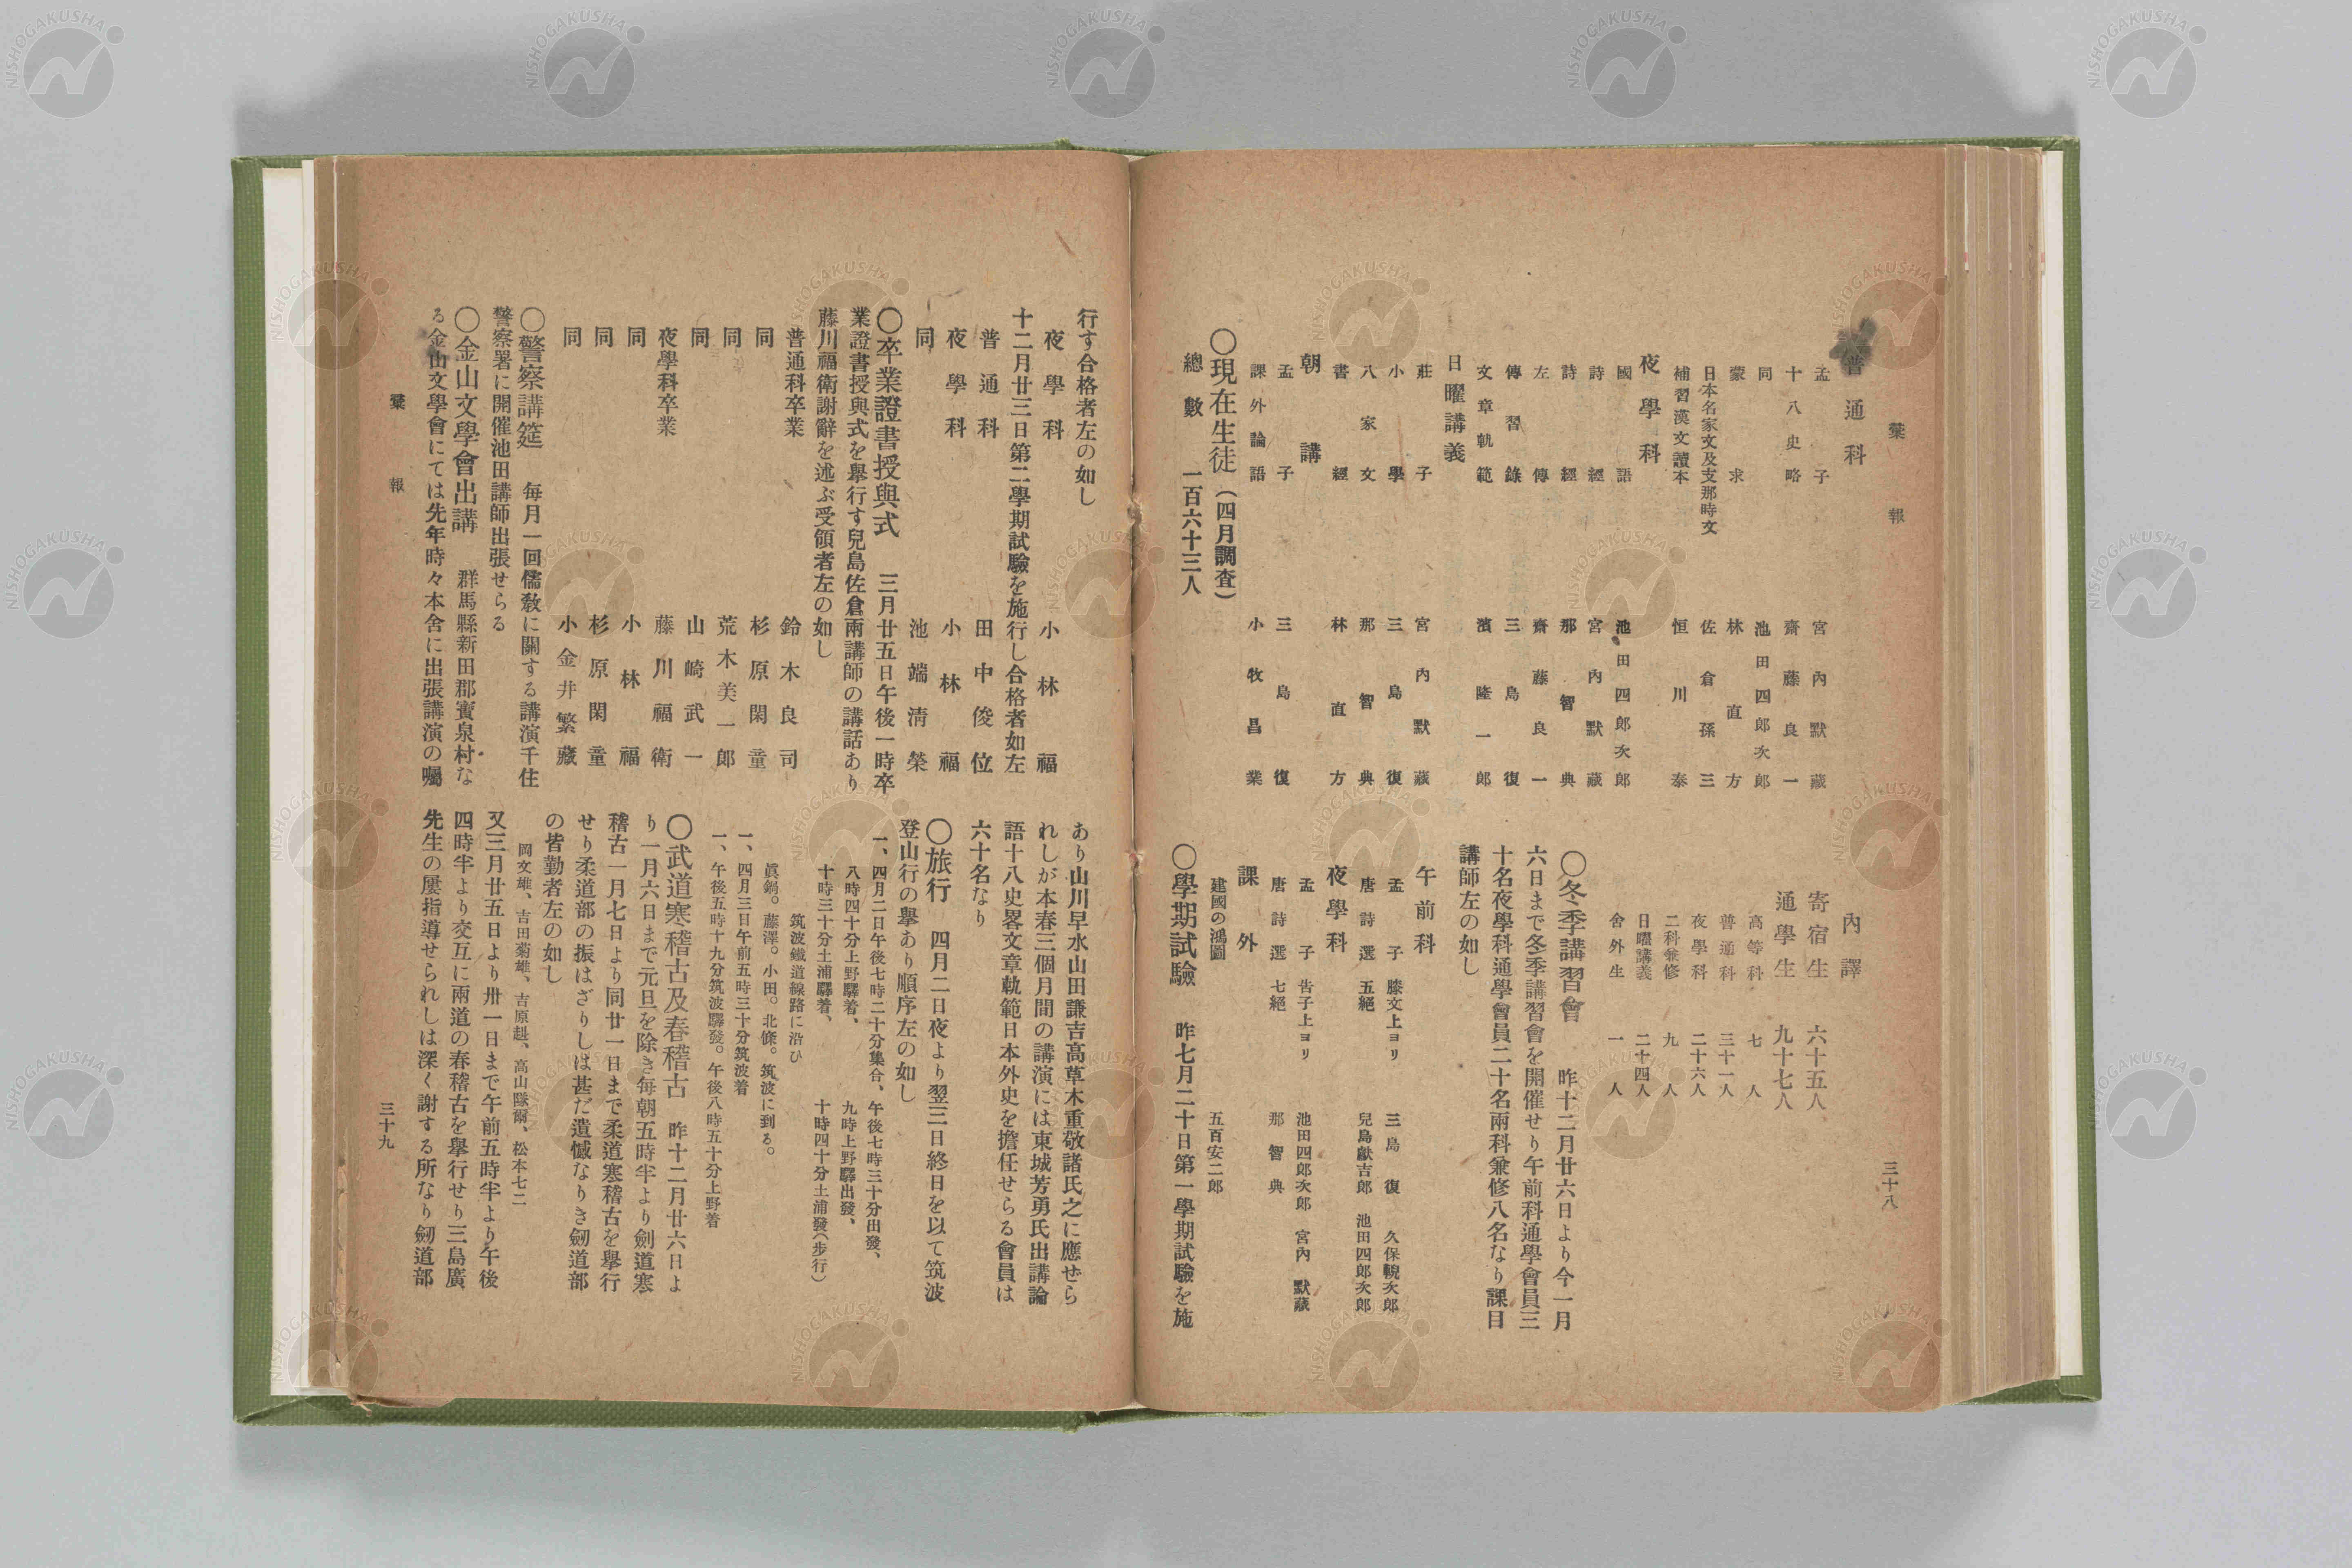 彙報
三十八
普通科
孟子 宮內默藏
十八史略 齋藤良一
同 池田四郎次郎
蒙求 林直方
日本名家文及支那時文 佐倉孫三
補習漢文讀本 恒川泰
夜學科
國語 池田四郎次郎
詩經 宮內默藏
詩經 那智典
左傳 齋藤良一
傳習錄 三島復
文章軌範 濱隆一郎
日曜講義
莊子 宮內默藏
小學 三島復
八家文 那智典
書經 林直方
朝講
孟子 三島復
課外論語 小牧昌業
〇現在生徒(四月調査)
總數 二百六十三人
內譯
寄宿生 六十五人
通學生 九十七人
高等科 七人
普通科 三十一人
夜學科 二十六人
二科兼修 九人
日曜講義 二十四人
舍外生 一人
〇冬季講習會 昨十二月廿六日より今一月
六日まで冬季講習會を開催せり午前科通學會員三
十名夜學科通學會員二十名兩科兼修八名なり課目
講師左の如し
午前科
孟子 滕文上ヨリ 三島復 久保輗次郎
唐詩選 五絕 兒島獻吉郎 池田四郎次郎
夜學科
孟子 告子上ヨリ 池田四郎次郎 宮內默藏
唐詩選 七絕 那智典
課外
建國の鴻圖 五百安二郎
〇學期試驗 昨七月二十日第一學期試驗を施
行す合格者左の如し
夜學科 小林福
十二月廿三日第二學期試驗を施行し合格者如左
普通科 田中俊位
夜學科 小林福
同 池端淸榮
〇卒業證書授與式 三月廿五日午後一時卒
業證書授與式を擧行す兒島佐倉兩講師の講話あり
藤川福衛謝辭を述ぶ受領者左の如し
普通科卒業 鈴木良司
同 杉原閑童
同 荒木美一郎
同 山崎武一
夜學科卒業 藤川福衛
同 小林福
同 杉原閑童
同 小金井繁藏
〇警察講筵 每月一回儒敎に關する講演千住
警察署に開催池田講師出張せらる
〇金山文學會出講 群馬縣新田郡寶泉村な
る金山文學會にては先年時々本舍に出張講演の囑
あり山川早水山田謙吉高草木重敬諸氏之に應せら
れしが本春三個月間の講演には東城芳勇氏出講論
語十八史畧文章軌範日本外史を擔任せらる會員は
六十名なり
〇旅行 四月二日夜より翌三日終日を以て筑波
登山行の擧あり順序左の如し
一、四月二日午後七時二十分集合、午後七時三十分出發、
八時四十分上野驛着、九時上野驛出發、
十時三十分土浦驛着、十時四十分土浦發(步行)
筑波鐵道線路に沿ひ
眞鍋。藤澤。小田。北條。筑波に到る。
一、四月三日午前五時三十分筑波着
一、午後五時十九分筑波驛發。午後八時五十分上野着
〇武道寒稽古及春稽古 昨十二月廿六日よ
り一月六日まで元旦を除き每朝五時半より劍道寒
稽古一月七日より同廿一日まで柔道寒稽古を擧行
せり柔道部の振はざりしは甚だ遺憾なりき劒道部
の皆勤者左の如し
岡文雄、吉田菊雄、吉原赳、高山隊爾、松本七二
又三月廿五日より卅一日まで午前五時半より午後
四時半より交互に兩道の春稽古を擧行せり三島廣
先生の屢指導せられしは深く謝する所なり劒道部
彙報
三十九